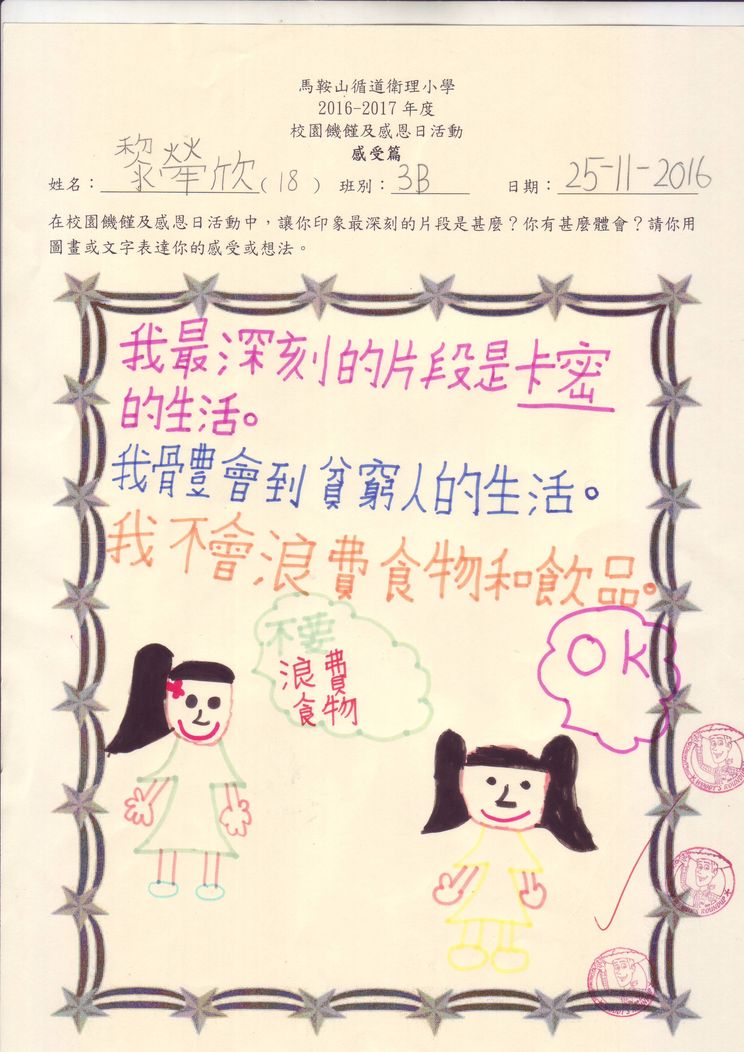 馬鞍山循道衛理小學
2016-2017 年度
校園饑饉及感恩日活動
感受篇
姓名：黎犖欣(18) 班別：3B 日期：25-11-2016
在校園饑饉及感恩日活動中，讓你印象最深刻的片段是甚麼？你有甚麼體會？請你用
圖畫或文字表達你的感受或想法。
我最深刻的片段是卡密
的生活。
我體會到貧窮人的生活。
我不會浪費食物和飲品。
不要
浪費
食物
OK